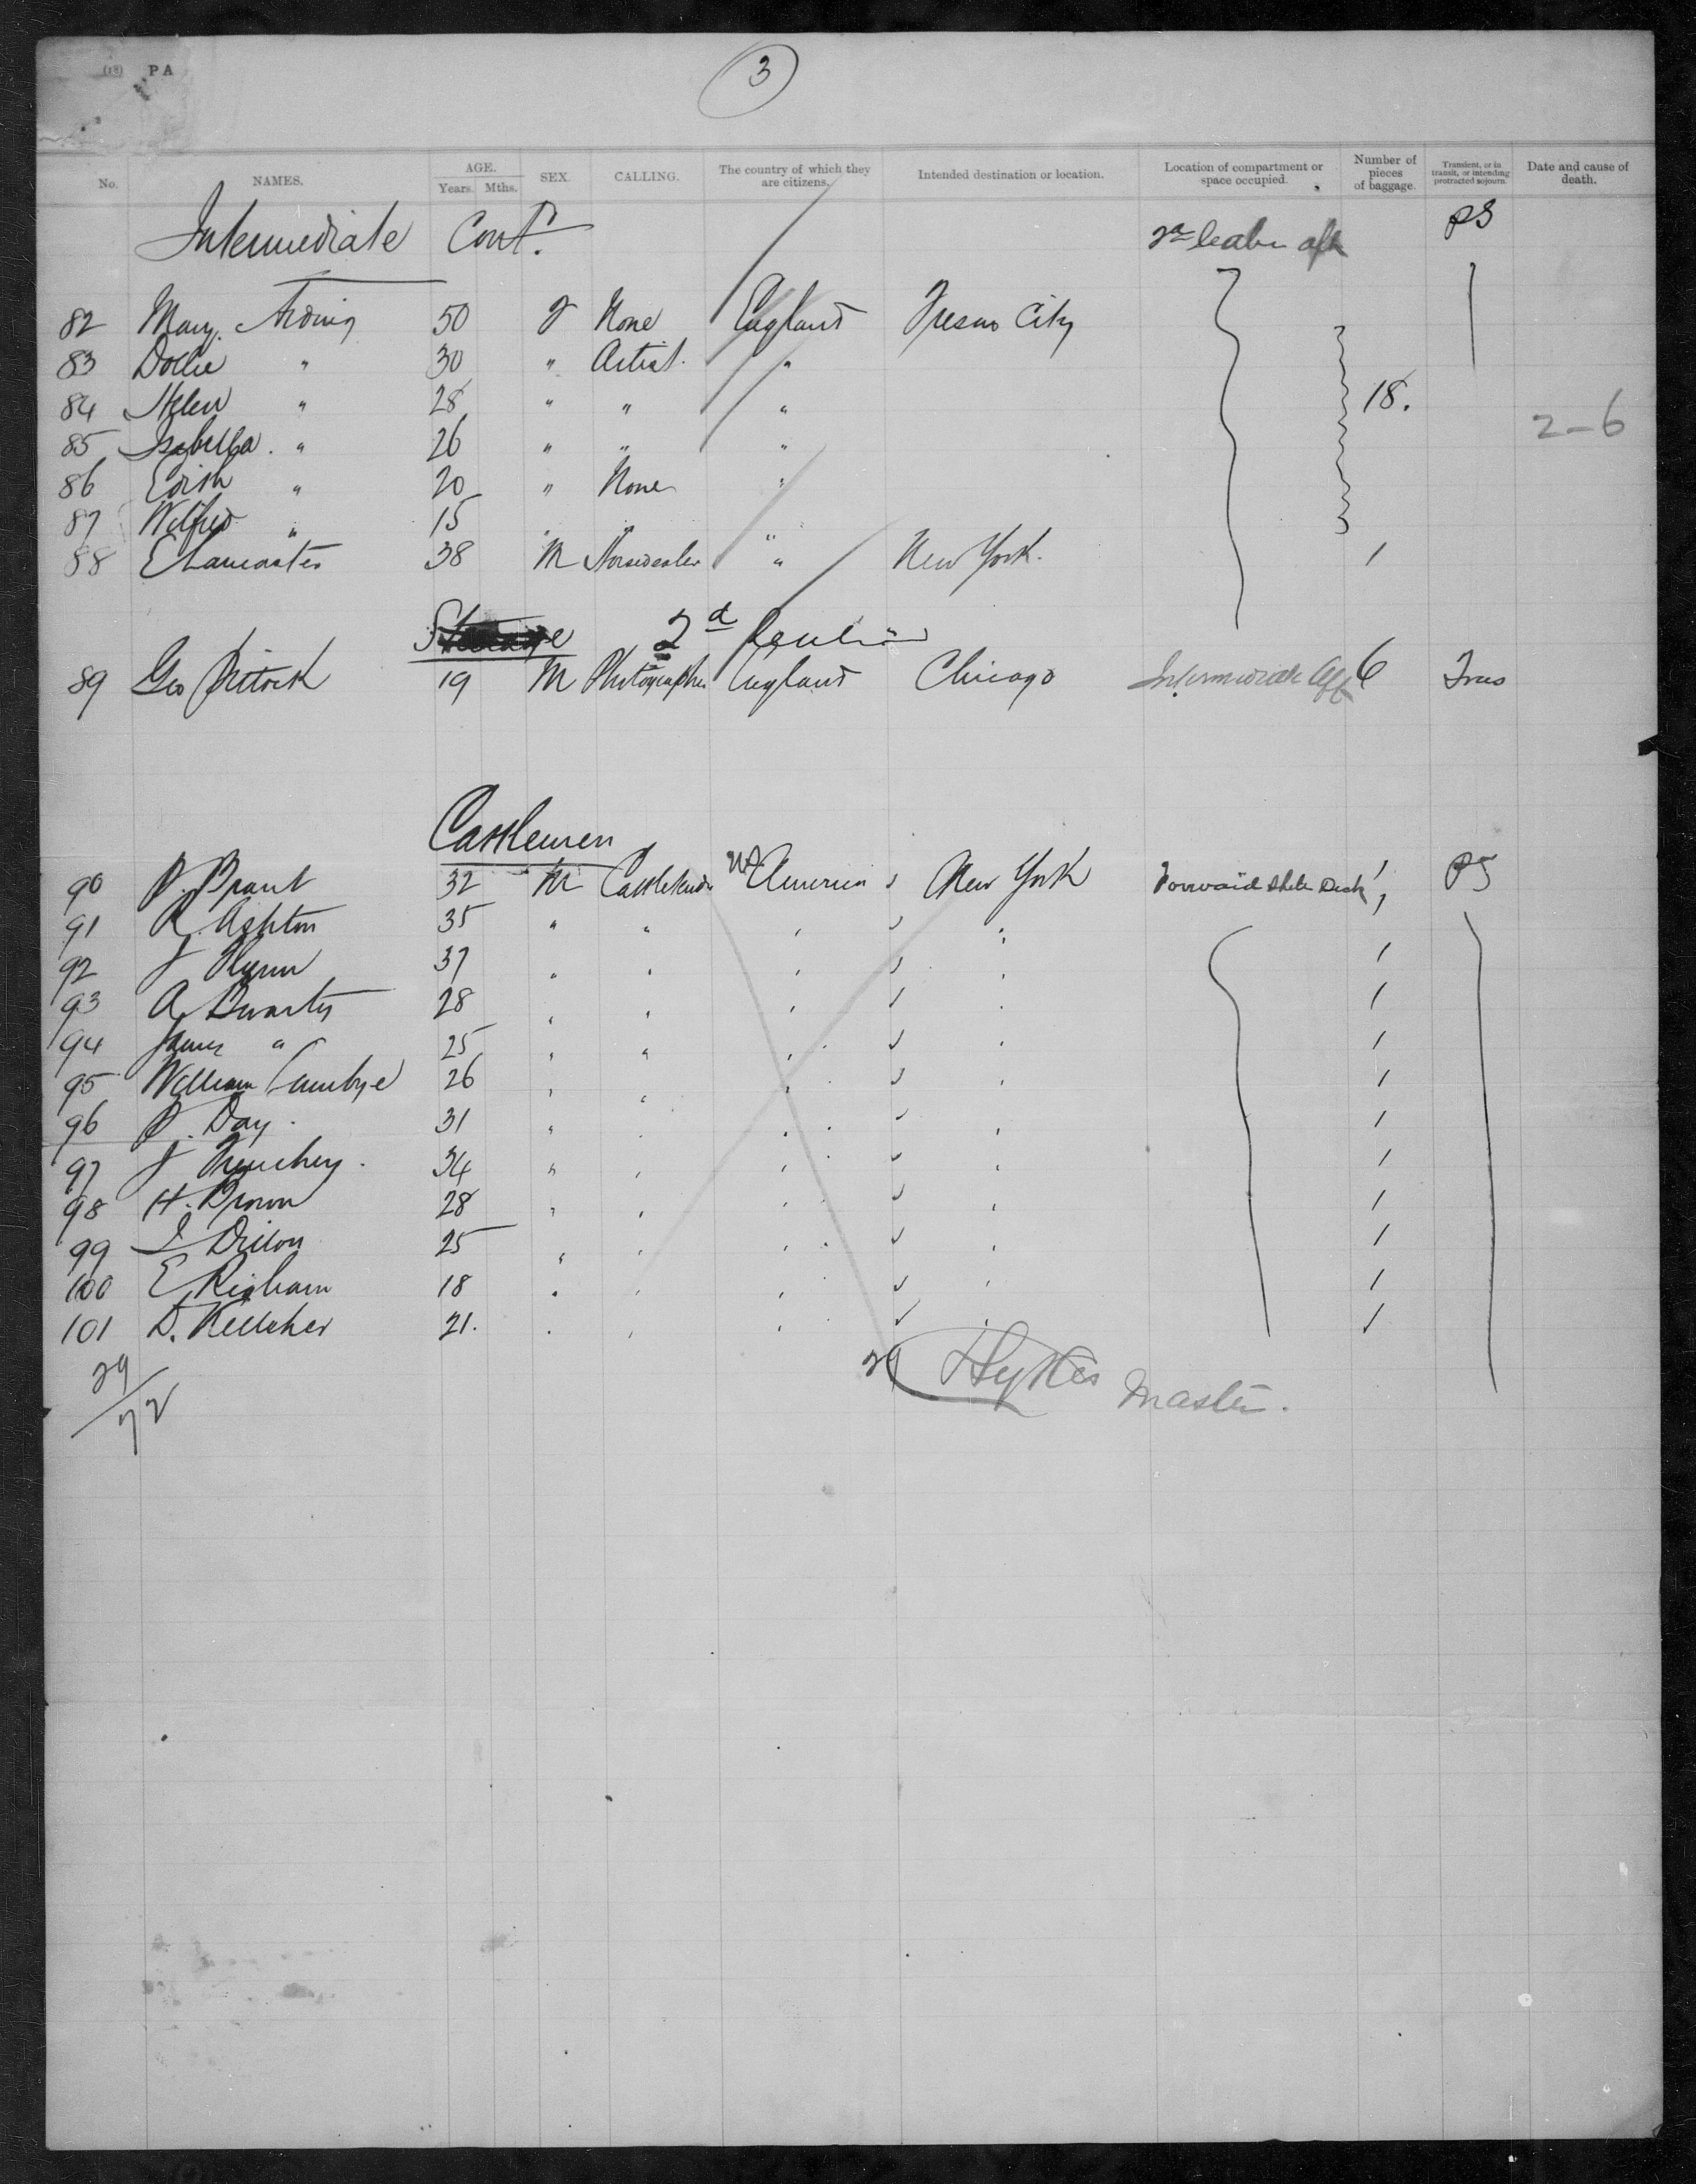 (18) PA
3
No. NAMES. AGE. Years. Mths. SEX. CALLING. The country of which they are citizens. Intended destination or location. Location of compartment or space occupied. Number of pieces of baggage. Transient, or in transit, or intending protracted sojourn. Date and cause of death.
Intermediate Cont. 2nd Cabin aft PS
82 Mary Arding 50 F None England Fresno City
83 Dollie " 30 " Artist "
84 Helen " 28 " " " 18.
2-6
85 Isabella " 26 " " "
86 Edith " 20 " None "
87 Wilfred " 15 "
88 E Lancaster 38 M Horsedealer " New York. 1
Steerage 2d Cabin
89 Geo Pittock 19 M Photographer England Chicago Intermediate Aft 6 Tras
Cattlemen
90 P. Brant 32 M Cattleman US America New York Forward Shelter Deck 1 PS
91 R. Ashton 35 " " " " 1
92 J Flynn 37 " " " " 1
93 A Swartz 28 " " " " 1
94 James " 25 " " " " 1
95 William 26 " " " " 1
96 P. Day 31 " " " " 1
97 J 34 " " " " 1
98 H. Brown 28 " " " " 1
99 Dillon 25 " " " " 1
100 E 18 " " " " 1
101 D. Kelleher 21. " " " " 1
29/72
29 Hykes Master.